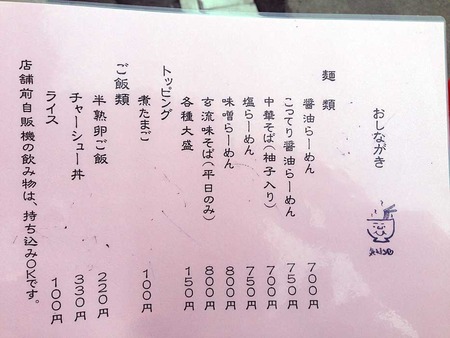 おしながき
麺類
醤油らーめん 700円
こってり醤油らーめん 750円
中華そば(柚子入り) 700円
塩らーめん 750円
味噌らーめん 800円
玄流味そば(平日のみ) 800円
各種大盛 150円
トッピング
煮たまご 100円
ご飯類
半熟卵ご飯 220円
チャーシュー丼 330円
ライス 100円
店舗前自販機の飲み物は、持ち込みOKです。